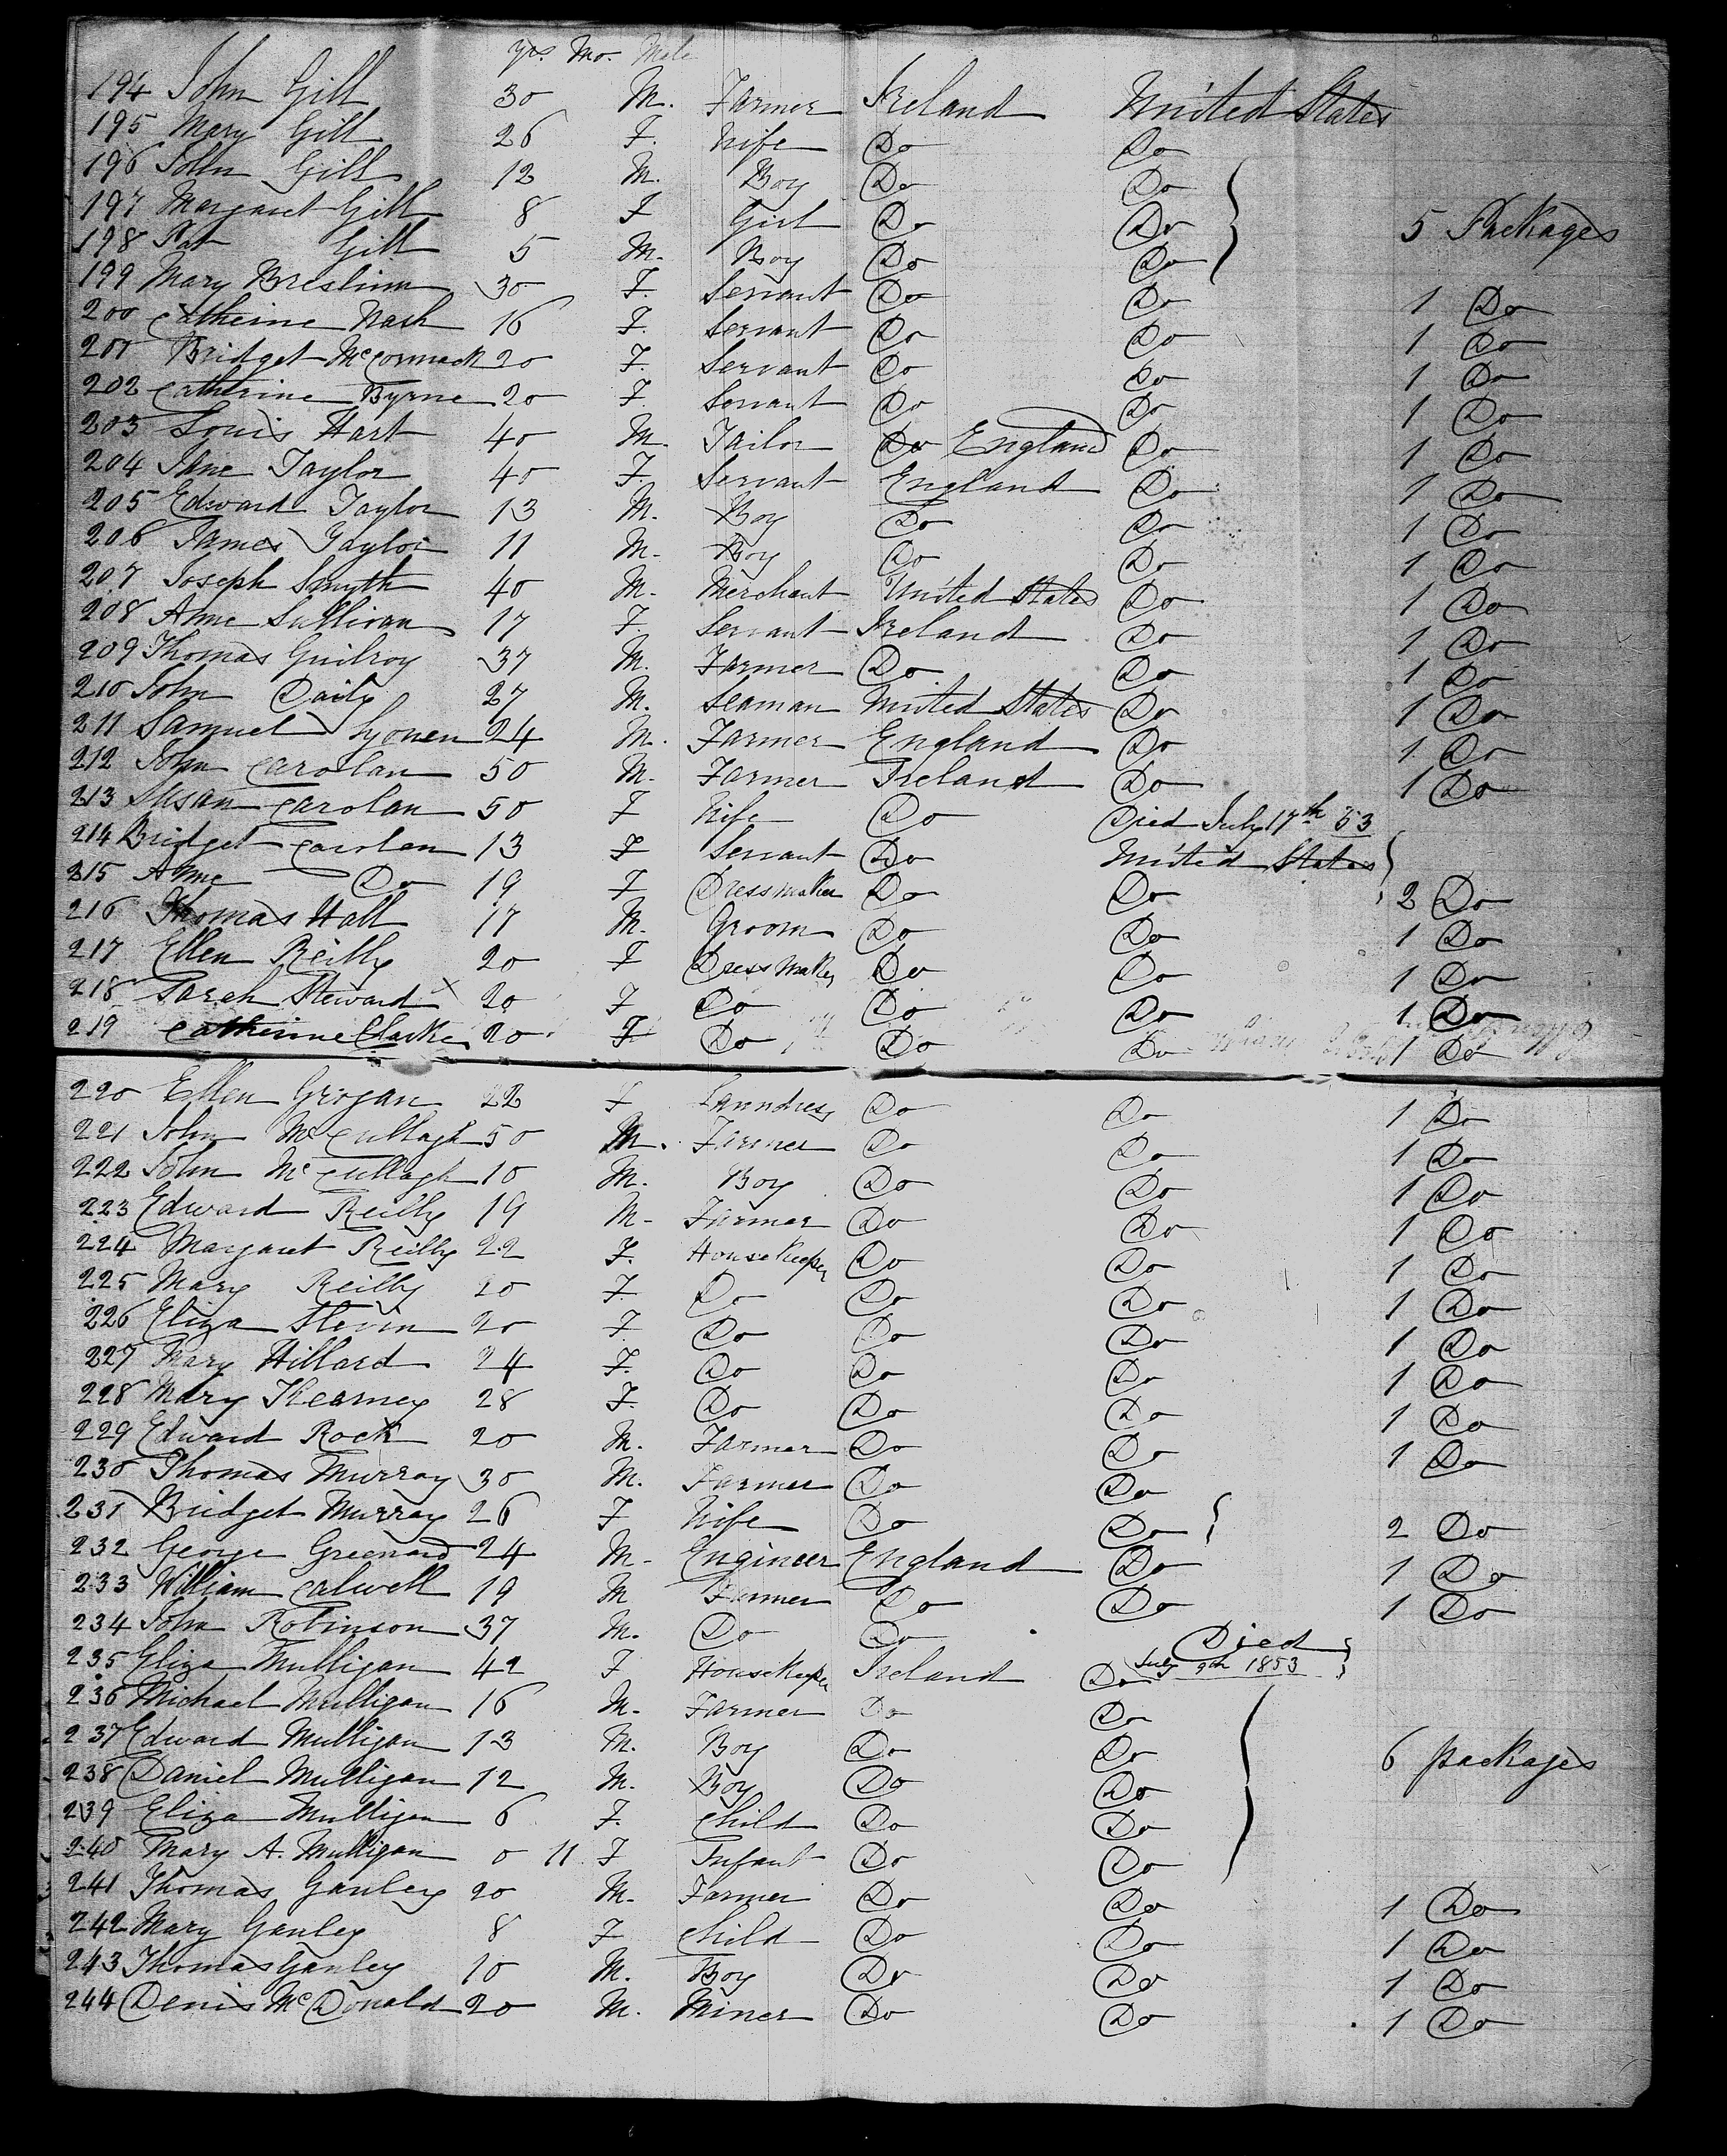 yrs. Mo. Male
194 John Gill 30 M. Farmer Ireland United States
195 Mary Gill 26 F. Wife Do Do
196 John Gill 12 M. Boy Do Do
197 Margaret Gill 8 F Girl Do Do 5 Packages
198 Pat Gill 5 M. Boy Do Do
199 Mary Breslinn 30 F. Servant Do Do 1 Do
200 Catherine Nash 16 F. Servant Do Do 1 Do
201 Bridget McCormack 20 F. Servant Do Do 1 Do
202 Catherine Byrne 20 F. Servant Do Do 1 Do
203 Louis Hart 40 M. Tailor Do England Do 1 Do
204 Jane Taylor 40 F. Servant England Do 1 Do
205 Edward Taylor 13 M. Boy Do Do 1 Do
206 James Taylor 11 M. Boy Do Do 1 Do
207 Joseph Smyth 40 M. Merchant United States Do 1 Do
208 Anne Sullivan 17 F. Servant Ireland Do 1 Do
209 Thomas Guilroy 37 M. Farmer Do Do 1 Do
210 John Daily 27 M. Seaman United States Do 1 Do
211 Samuel 24 M. Farmer England Do 1 Do
212 John Carolan 50 M. Farmer Ireland Do 1 Do
213 Susan Carolan 50 F Wife Do Died July 17th 53
214 Bridget Carolan 13 F Servant Do United States
215 Anne Do 19 F Dressmaker Do Do 2 Do
216 Thomas Hall 17 M. Groom Do Do 1 Do
217 Ellen Reilly 20 F Dress Maker Do Do 1 Do
218 Sarah Steward X 20 F Do Do Do 1 Do
219 Catherine Clarke 20 F Do Do Do 1 Do
220 Ellen Grogan 22 F Laundress Do Do 1 Do
221 John McCullagh 50 M. Farmer Do Do 1 Do
222 John McCullagh 10 M. Boy Do Do 1 Do
223 Edward Reilly 19 M. Farmer Do Do 1 Do
224 Margaret Reilly 22 F. HouseKeeper Do Do 1 Do
225 Mary Reilly 20 F. Do Do Do 1 Do
226 Eliza Slevin 20 F. Do Do Do 1 Do
227 Mary Hillard 24 F. Do Do Do 1 Do
228 Mary Kearney 28 F. Do Do Do 1 Do
229 Edward Rock 20 M. Farmer Do Do 1 Do
230 Thomas Murray 30 M. Farmer Do Do
231 Bridget Murray 26 F Wife Do Do 2 Do
232 George Greenard 24 M. Engineer England Do 1 Do
233 William Calwell 19 M Farmer Do Do 1 Do
234 John Robinson 37 M. Do Do Died
235 Eliza Mulligan 42 F HouseKeeper Ireland Do July 9th 1853
236 Michael Mulligan 16 M. Farmer Do Do
237 Edward Mulligan 13 M. Boy Do Do 6 packages
238 Daniel Mulligan 12 M. Boy Do Do
239 Eliza Mulligan 6 F. Child Do Do
240 Mary A. Mulligan 0 11 F Infant Do Do
241 Thomas Ganley 20 M. Farmer Do Do 1 Do
242 Mary Ganley 8 F Child Do Do 1 Do
243 Thomas Ganley 10 M. Boy Do Do 1 Do
244 Denis McDonald 20 M. Miner Do Do 1 Do